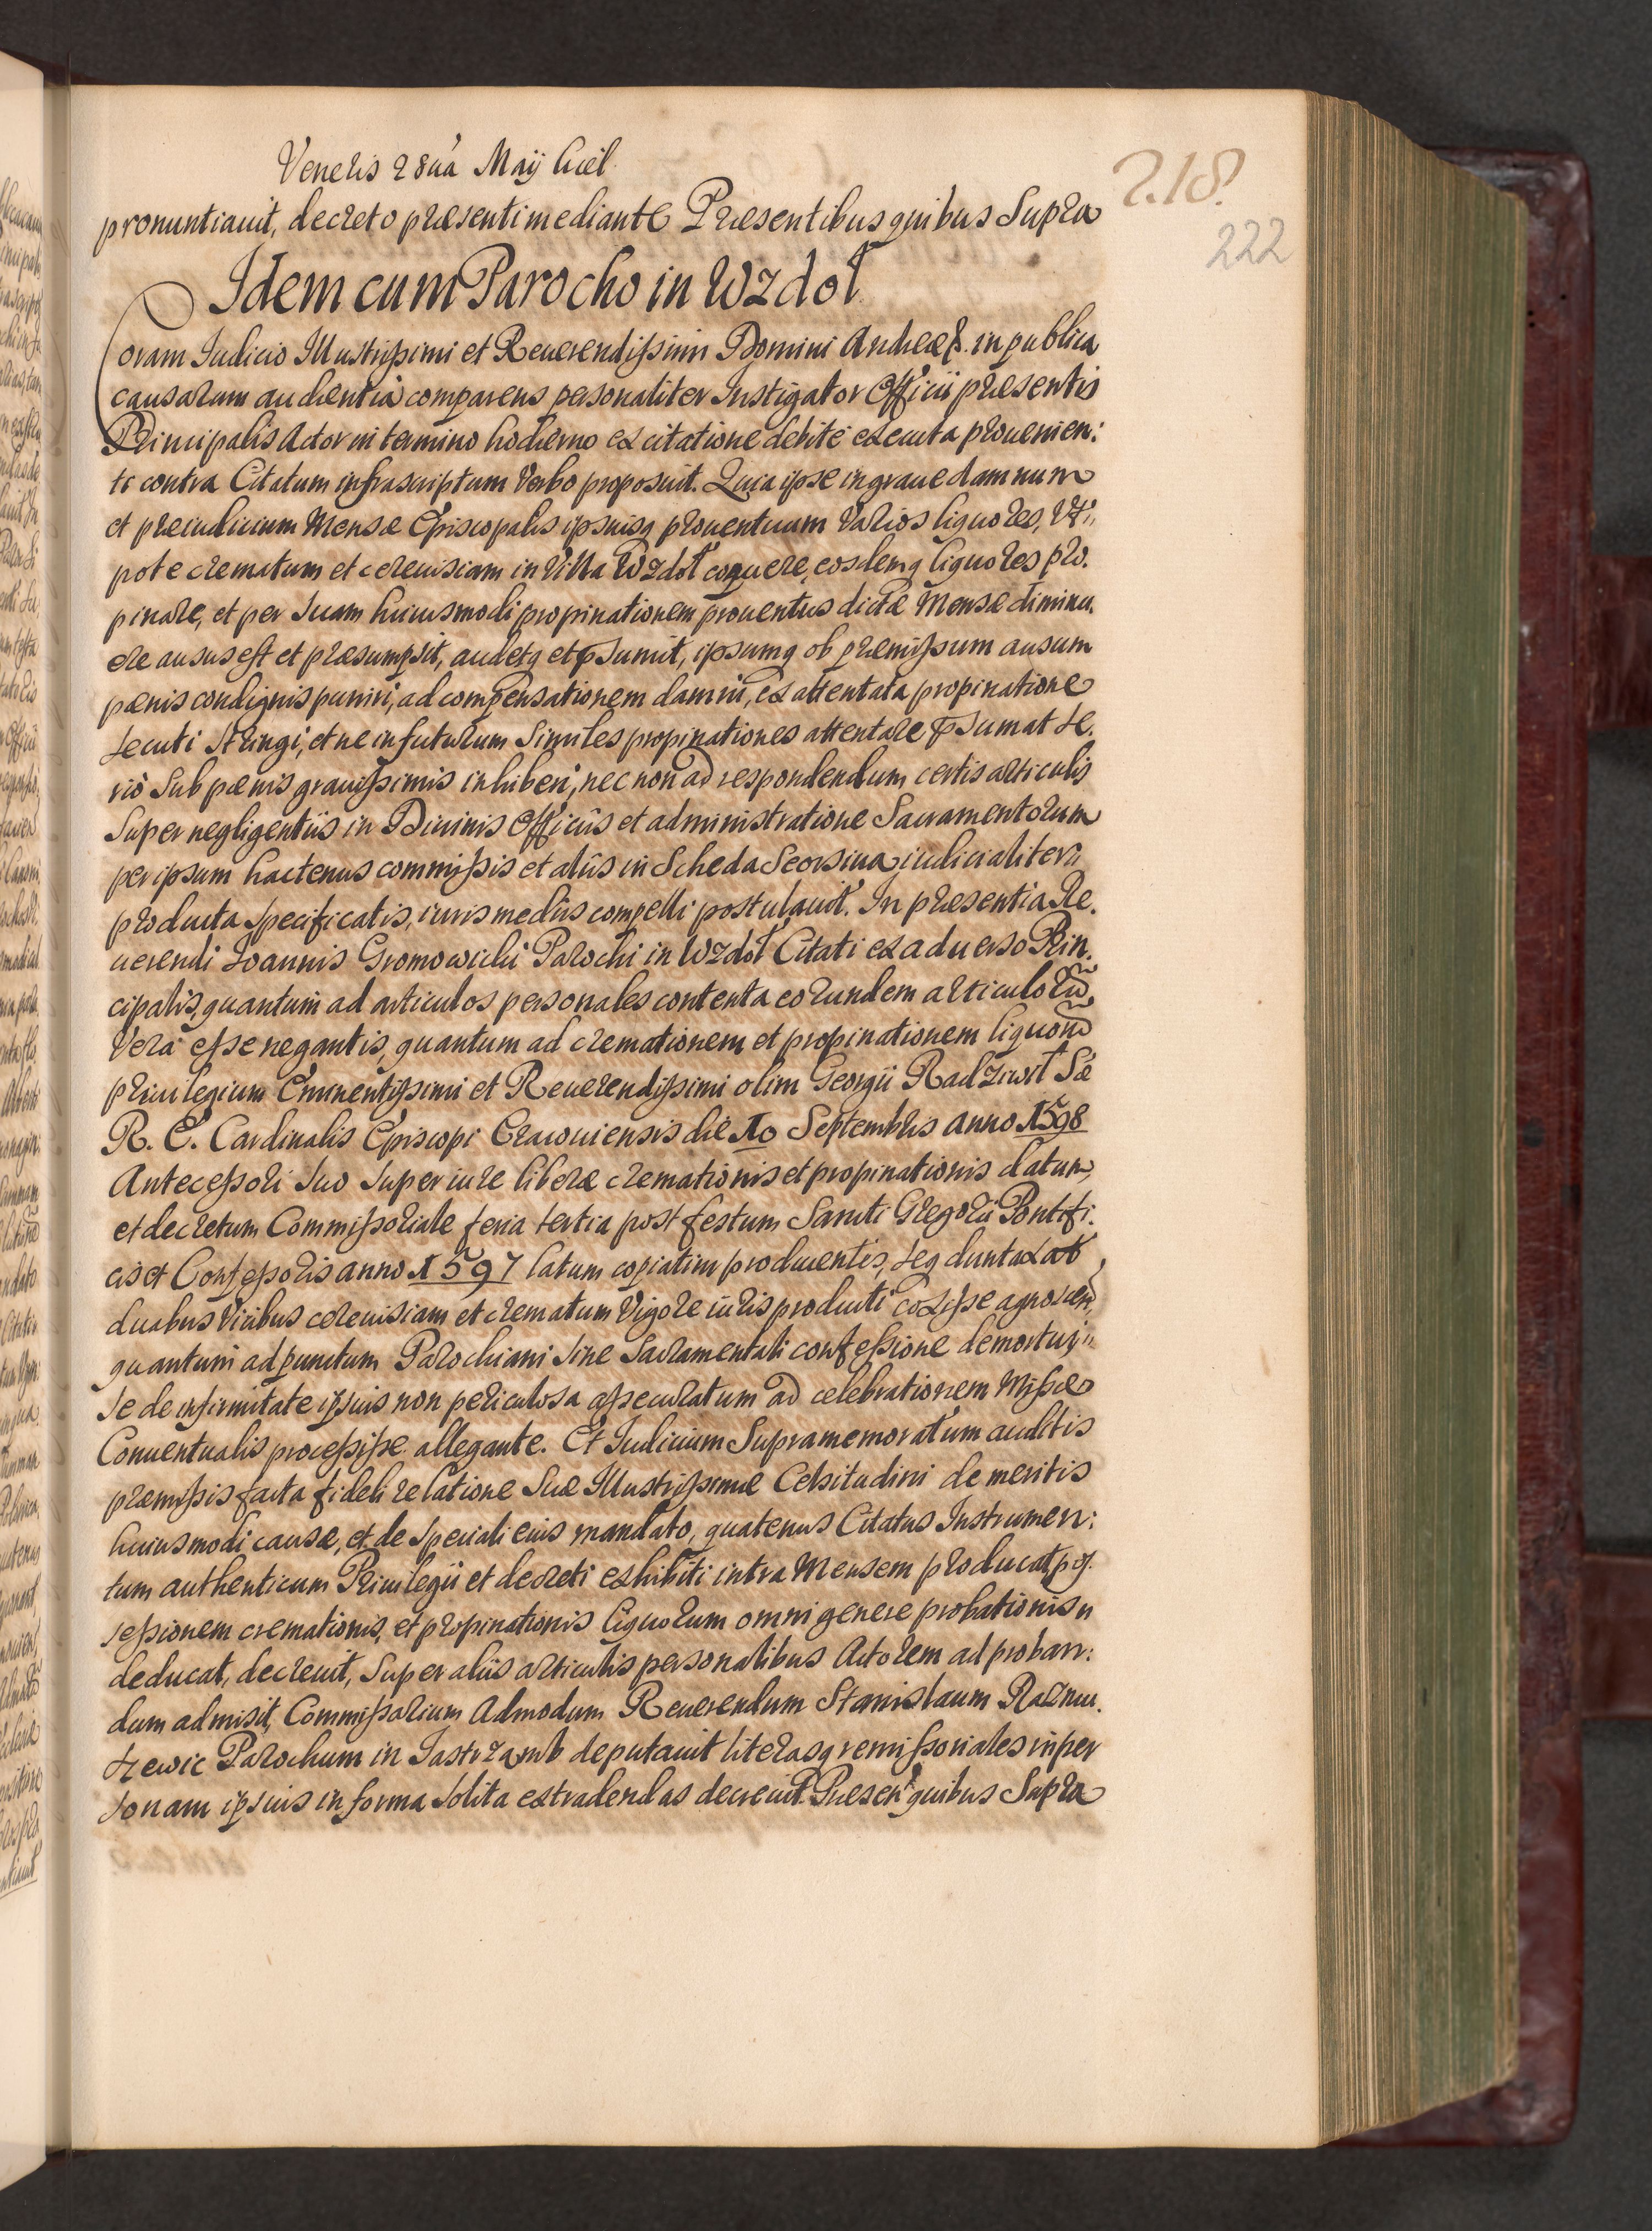 Veneris 28va Maÿ Kiel.
218.
222
pronuntiauit, decreto præsenti mediante Præsentibus quibus Supra
Idem cum Parocho in Wzdoł
Coram Iudicio Illustrissimi et Reuerendissimi Domini Andreæ &. in publica
causarum audientia comparens personaliter Instigator Officii præsentis
Principalis Actor in termino hodierno ex citatione debitè executa prouenien:
ti contra Citatum infrascriptum Verbo proposuit. Quia ipse in graue damnum
et præiudicium Mensæ Episcopalis ipsiusq prouentuum Varios liquores, Vt"
pote crematum et cereuisiam in Villa Wzdoł coquere, eosdemq liquores pro.
pinare, et per suam huiusmodi propinationem prouentus dictæ Mensæ diminu.
ere ausus est et præsumpsit, audetq et p̄sumit, ipsumq ob præmissum ausum
pœnis condignis puniri, ad compensationem damni, ex attentata propinatione
secuti stringi, et ne in futurum Similes propinationes attentare p̄sumat se.
riò Sub pœnis grauissimis inhiberi, nec non ad respondendum certis articulis
Super negligentiis in Diuinis Officiis et administratione Sacramentorum
per ipsum hactenus commissis et aliis in Scheda Seorsiua iudicialiter
producta specificatis, iuris mediis compelli postulauit. In præsentia Re.
uerendi Ioannis Gromowicki Parochi in Wzdoł Citati ex aduerso Prin.
cipalis, quantum ad articulos personales contenta eorundem articulorū
Vera esse negantis, quantum ad cremationem et propinationem liquorū
priuilegium Eminentissimi et Reuerendissimi olim Georgii Radziwił Sæ
R. E. Cardinalis Episcopi Cracouiensis die 10 Septembris anno 1598
Antecessori suo super iure liberæ cremationis et propinationis datum,
et decretum Commissoriale feria tertia post festum Sancti Gregorii Pontifi.
cis et Confessoris anno 1597 latum copiatim producentis, seq duntaxat
duabus Vicibus cereuisiam et crematum Vigore iuris producti coxisse agnoscen,
quantum ad punctum Parochiani sine Sacramentali confessione demortui"
se de infirmitate ipsius non periculosa assecuratum ad celebrationem Missæ
Conuentualis processisse allegante. Et Iudicium Supramemoratum auditis
præmissis facta fideli relatione Suæ Illustrissimæ Celsitudini de meritis
huiusmodi causæ, et de speciali eius mandato, quatenus Citatus Instrumen:
tum authenticum Priuilegii et decreti exhibiti intra Mensem producat, pos.
sessionem cremationis, et propinationis liquorum omni genere probationis
deducat, decreuit, Super aliis articulis personalibus Actorem ad proban:
dum admisit, Commissarium Admodum Reuerendum Stanislaum
Parochum in Jastrząmb deputauit literasq remissoriales in per
sonam ipsius in forma solita extradendas decreuit. Præsen. quibus Supra